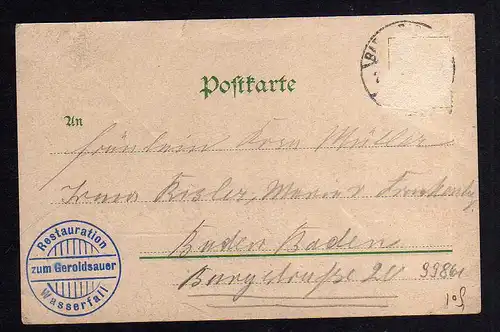 Postkarte
An
Fräulein Rosa Müller
Irma Kisler, Maria
Baden Baden
Burgstraße 20
99861
Restauration
zum Geroldsauer
Wasserfall